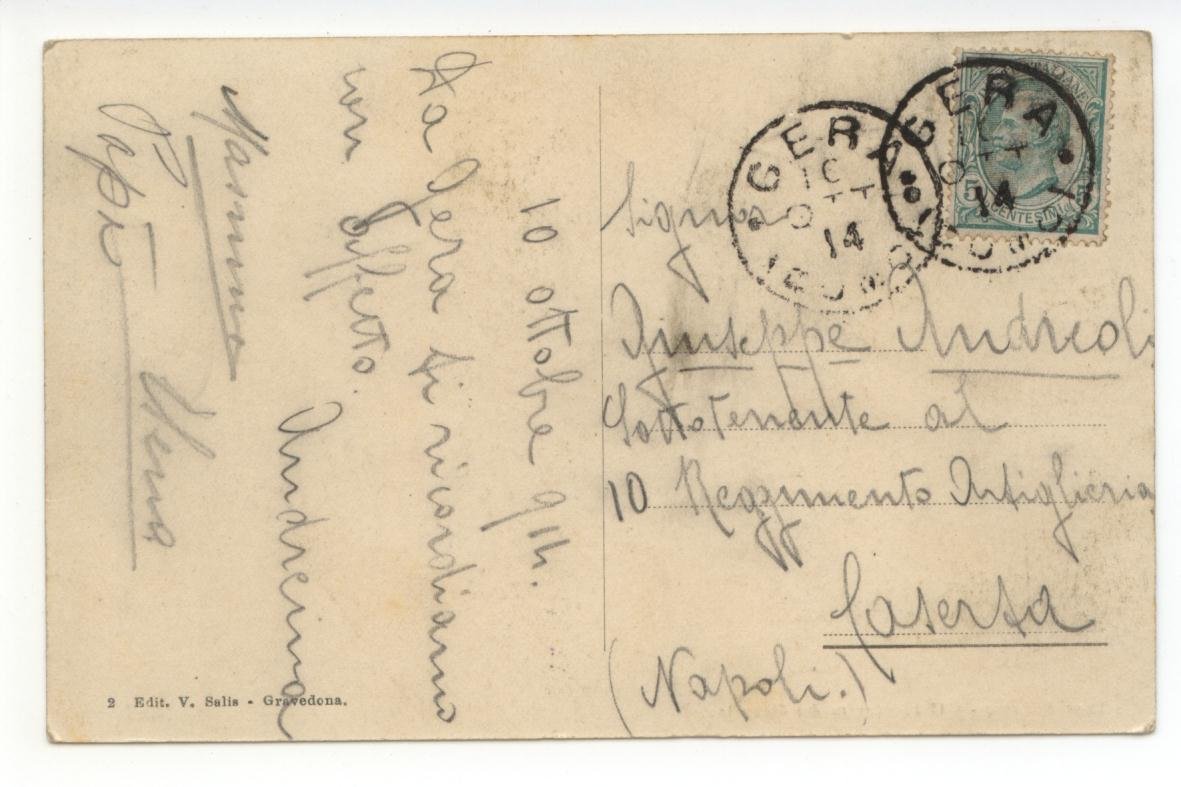 10 ottobre 914.
Da Gera ti ricordiamo
con affetto.
Andreina
Mamma
Papà
Signor
Giuseppe Andreoli
Sottotenente al
10 Reggimento Artiglieria
Caserta
(Napoli.)
GERA
10
OTT
14
(COMO)
GERA
10
OTT
14
(COMO)
5
CENTESIMI
2 Edit. V. Salis - Gravedona.